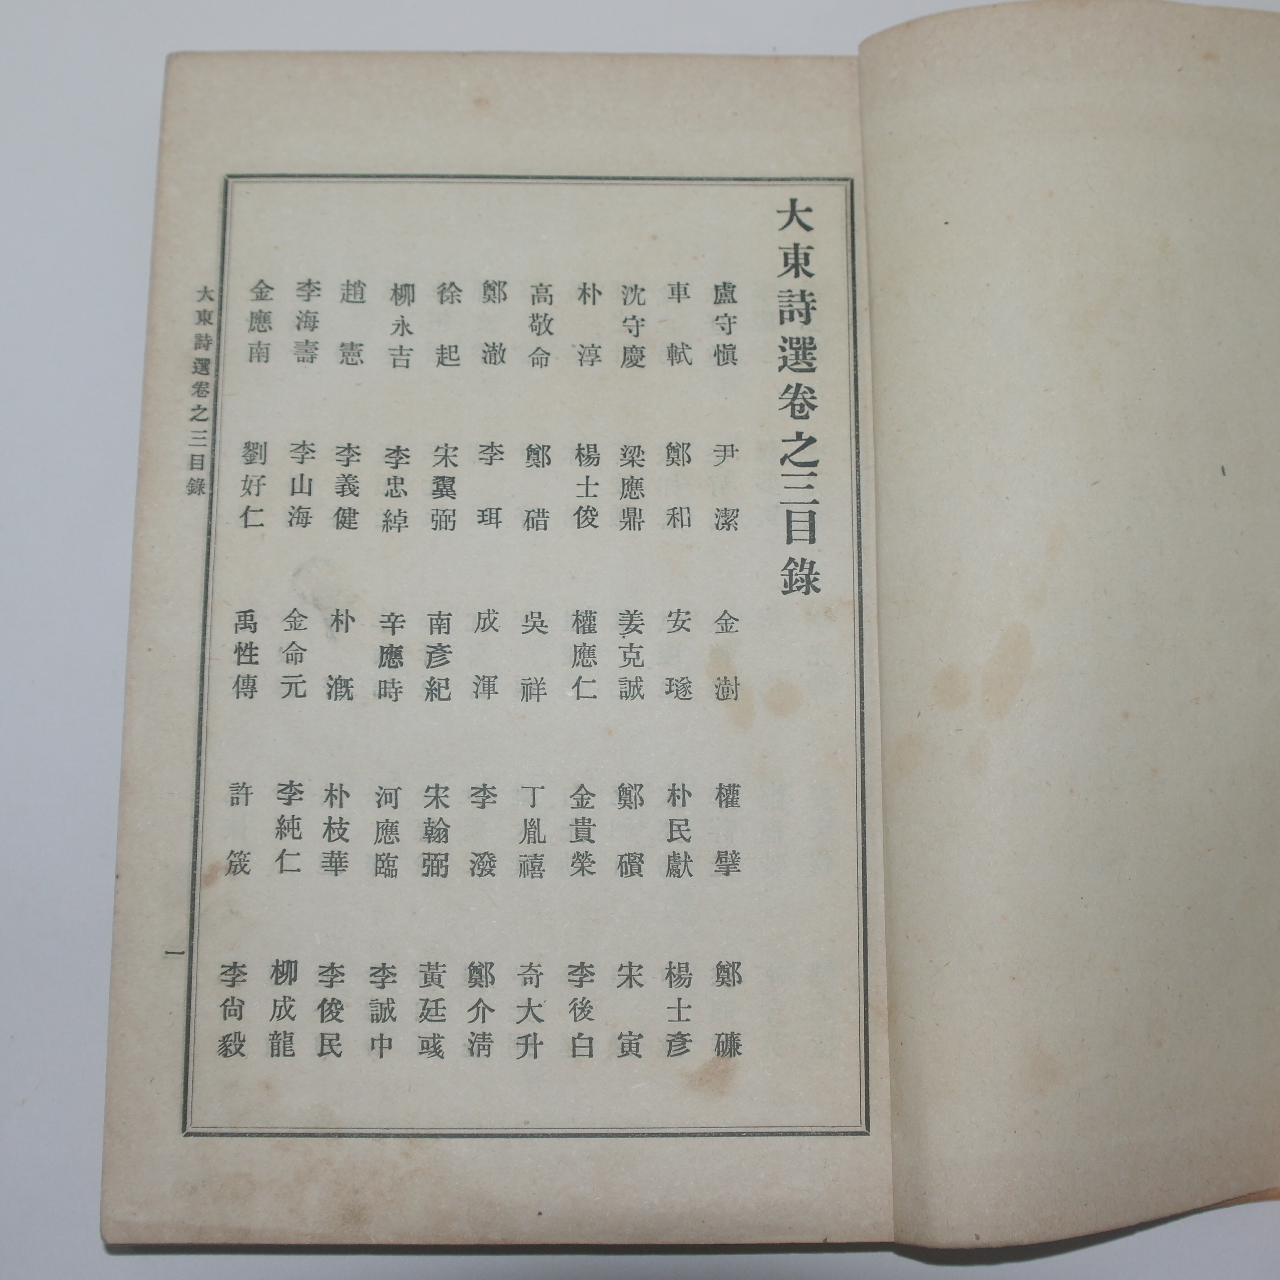 大東詩選卷之三目錄
盧守愼 尹潔 金澍 權擘 鄭磏
車軾 鄭和 安璲 朴民獻 楊士彥
沈守慶 梁應鼎 姜克誠 鄭礥 宋寅
朴淳 楊士俊 權應仁 金貴榮 李後白
高敬命 鄭碏 吳祥 丁胤禧 奇大升
鄭澈 李珥 成渾 李潑 鄭介淸
徐起 宋翼弼 南彥紀 宋翰弼 黃廷彧
柳永吉 李忠綽 辛應時 河應臨 李誠中
趙憲 李義健 朴漑 朴枝華 李俊民
李海壽 李山海 金命元 李純仁 柳成龍
金應南 劉好仁 禹性傳 許筬 李尙毅
大東詩選卷之三目錄 一